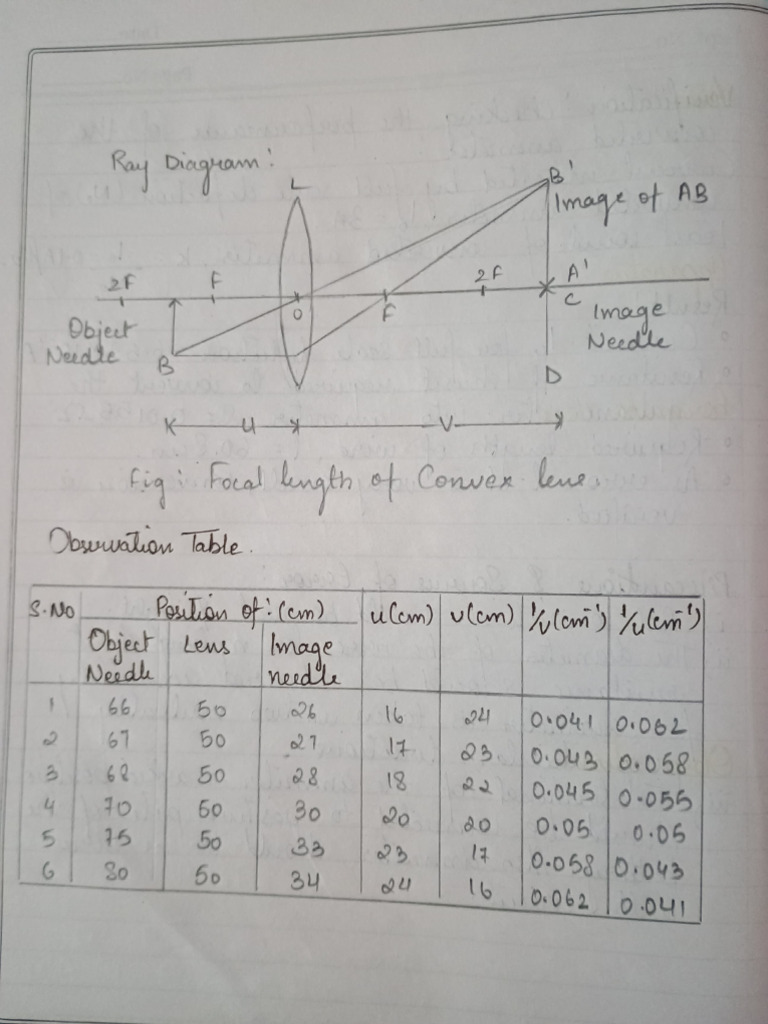 Ray Diagram:
L
B'
Image of AB
2F
F
2F
A'
O
F
C
Object
Needle
Image
Needle
B
D
u
v
Fig: Focal length of Convex lens
Observation Table.
S.No Position of: (cm) u(cm) v(cm) 1/v(cm⁻¹) 1/u(cm⁻¹)
Object Needle Lens Image needle
1 66 50 26 16 24 0.041 0.062
2 67 50 27 17 23 0.043 0.058
3 68 50 28 18 22 0.045 0.055
4 70 50 30 20 20 0.05 0.05
5 75 50 33 23 17 0.058 0.043
6 80 50 34 24 16 0.062 0.041